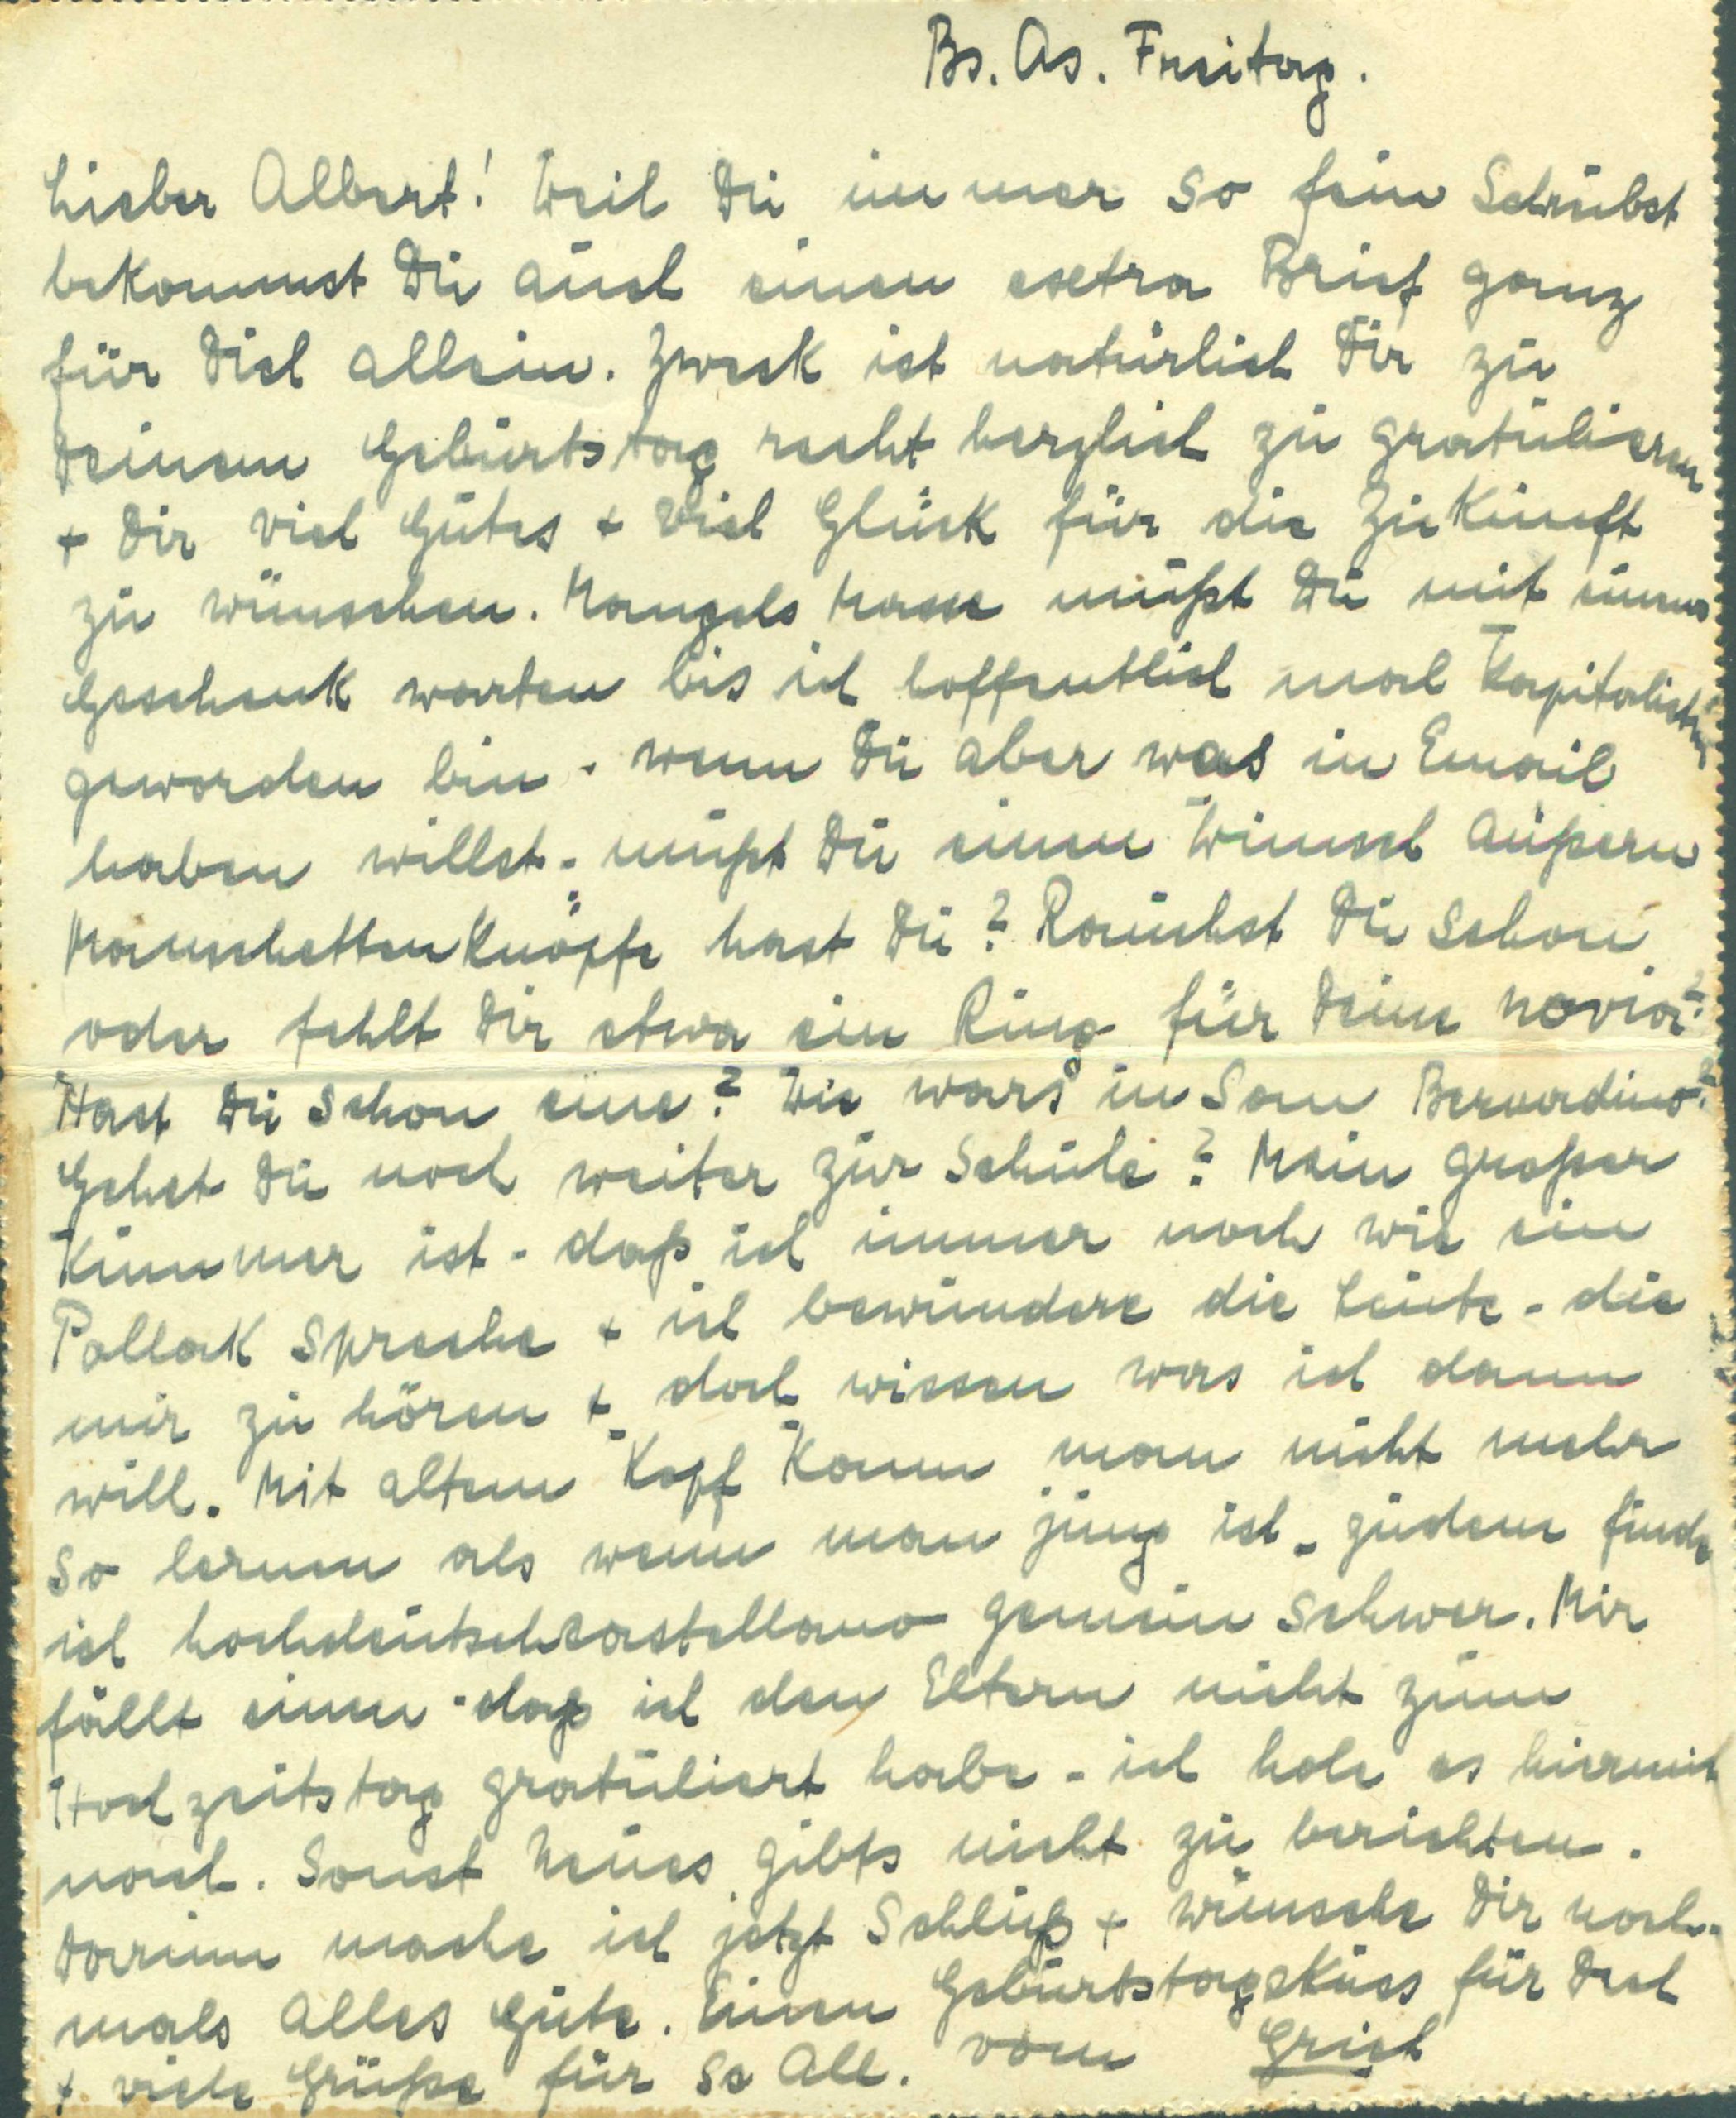 Bs. As. Freitag.
Lieber Albert! Weil Du immer so fein schreibst
bekommst Du auch einen extra Brief ganz
für Dich allein. Zweck ist natürlich Dir zu
Deinem Geburtstag recht herzlich zu gratulieren
+ Dir viel Gutes + viel Glück für die Zukunft
zu wünschen. Mangels Masse mußt Du mit einem
Geschenk warten bis ich hoffentlich mal Kapitalistin
geworden bin - wenn Du aber was in Email
haben willst - mußt Du einen Wunsch äußern
Manschettenknöpfe hast Du? Rauchst Du schon
oder fehlt Dir etwa ein Ring für Deine novia?
Hast Du schon eine? Wie wars in San Bernardino?
Gehst Du noch weiter zur Schule? Mein großer
Kummer ist - daß ich immer noch wie ein
Pollak spreche + ich bewundere die Leute - die
mir zu hören + doch wissen was ich dann
will. Mit altem Kopf kann man nicht mehr
so lernen als wenn man jung ist - zudem finde
ich hochdeutschcastellano gemein schwer. Mir
fällt einen - daß ich den Eltern nicht zum
Hochzeitstag gratuliert habe - ich hole es hiermit
nach. Sonst Neues gibts nicht zu berichten.
Darum mache ich jetzt Schluß + wünsche Dir noch-
mals Alles Gute. Einen Geburtstagskuss für Dich
+ viele Grüße für Se All. vom Griet